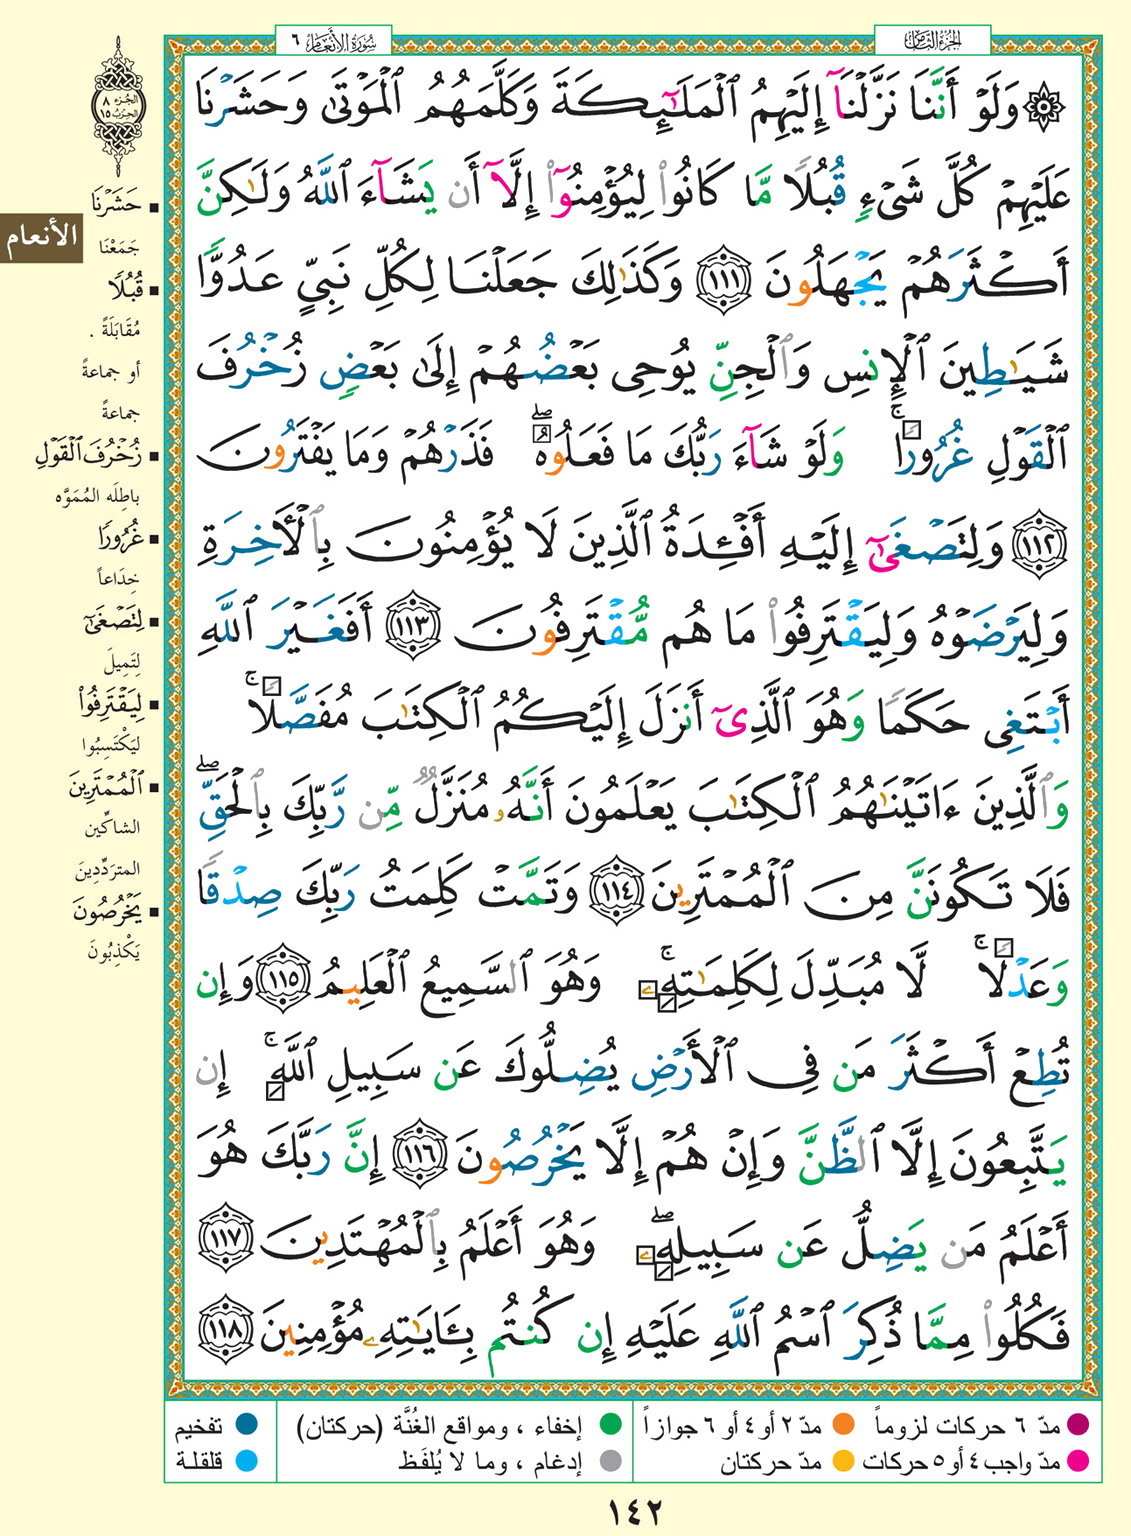 الجزء الثامن
سورة الأنعام ٦
۞ وَلَوْ أَنَّنَا نَزَّلْنَآ إِلَيْهِمُ ٱلْمَلَٰٓئِكَةَ وَكَلَّمَهُمُ ٱلْمَوْتَىٰ وَحَشَرْنَا
عَلَيْهِمْ كُلَّ شَىْءٍ قُبُلًا مَّا كَانُوا۟ لِيُؤْمِنُوٓا۟ إِلَّآ أَن يَشَآءَ ٱللَّهُ وَلَٰكِنَّ
أَكْثَرَهُمْ يَجْهَلُونَ ١١١ وَكَذَٰلِكَ جَعَلْنَا لِكُلِّ نَبِىٍّ عَدُوًّا
شَيَٰطِينَ ٱلْإِنسِ وَٱلْجِنِّ يُوحِى بَعْضُهُمْ إِلَىٰ بَعْضٍ زُخْرُفَ
ٱلْقَوْلِ غُرُورًا ۚ وَلَوْ شَآءَ رَبُّكَ مَا فَعَلُوهُ ۖ فَذَرْهُمْ وَمَا يَفْتَرُونَ
١١٢ وَلِتَصْغَىٰٓ إِلَيْهِ أَفْـِٔدَةُ ٱلَّذِينَ لَا يُؤْمِنُونَ بِٱلْءَاخِرَةِ
وَلِيَرْضَوْهُ وَلِيَقْتَرِفُوا۟ مَا هُم مُّقْتَرِفُونَ ١١٣ أَفَغَيْرَ ٱللَّهِ
أَبْتَغِى حَكَمًا وَهُوَ ٱلَّذِىٓ أَنزَلَ إِلَيْكُمُ ٱلْكِتَٰبَ مُفَصَّلًا ۚ
وَٱلَّذِينَ ءَاتَيْنَٰهُمُ ٱلْكِتَٰبَ يَعْلَمُونَ أَنَّهُۥ مُنَزَّلٌ مِّن رَّبِّكَ بِٱلْحَقِّ ۖ
فَلَا تَكُونَنَّ مِنَ ٱلْمُمْتَرِينَ ١١٤ وَتَمَّتْ كَلِمَتُ رَبِّكَ صِدْقًا
وَعَدْلًا ۚ لَّا مُبَدِّلَ لِكَلِمَٰتِهِۦ ۚ وَهُوَ ٱلسَّمِيعُ ٱلْعَلِيمُ ١١٥ وَإِن
تُطِعْ أَكْثَرَ مَن فِى ٱلْأَرْضِ يُضِلُّوكَ عَن سَبِيلِ ٱللَّهِ ۚ إِن
يَتَّبِعُونَ إِلَّا ٱلظَّنَّ وَإِنْ هُمْ إِلَّا يَخْرُصُونَ ١١٦ إِنَّ رَبَّكَ هُوَ
أَعْلَمُ مَن يَضِلُّ عَن سَبِيلِهِۦ ۖ وَهُوَ أَعْلَمُ بِٱلْمُهْتَدِينَ ١١٧
فَكُلُوا۟ مِمَّا ذُكِرَ ٱسْمُ ٱللَّهِ عَلَيْهِ إِن كُنتُم بِـَٔايَٰتِهِۦ مُؤْمِنِينَ ١١٨
الجزء ٨
الحزب ١٥
الأنعام
▪ حَشَرْنَا
جَمَعْنَا
▪ قُبُلًا
مُقَابَلَةً .
أو جماعةً
جماعةً
▪ زُخْرُفَ ٱلْقَوْلِ
باطِلَه المُمَوَّه
▪ غُرُورًا
خِدَاعاً
▪ لِتَصْغَىٰٓ
لِتَمِيلَ
▪ لِيَقْتَرِفُوا۟
لِيَكْتَسِبُوا
▪ ٱلْمُمْتَرِينَ
الشاكِّين
المتردِّدِينَ
▪ يَخْرُصُونَ
يَكْذِبُونَ
مدّ ٦ حركات لزوماً
مدّ ٢ أو ٤ أو ٦ جوازاً
إخفاء ، ومواقع الغُنَّة (حركتان)
تفخيم
مدّ واجب ٤ أو ٥ حركات
مدّ حركتان
إدغام ، وما لا يُلفَظ
قلقلة
١٤٢